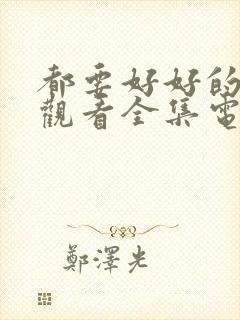 都要好好的
觀看全集電
鄭澤光